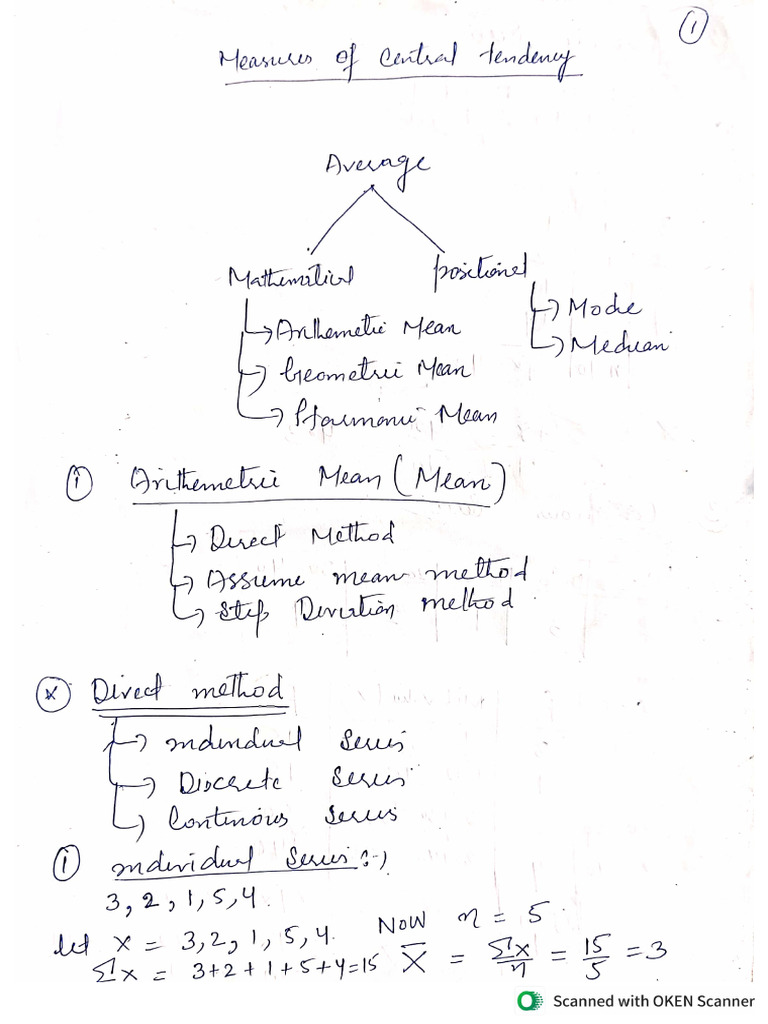 1
Measures of Central tendency
Average
Mathematical positional
Arithemetic Mean
Mode
Geometric Mean
Median
Harmonic Mean
① Arithemetric Mean (Mean)
Direct Method
Assume mean method
Step Deviation method
Direct method
Individual Series
Discrete Series
Continous Series
① Individual Series :-)
3, 2, 1, 5, 4.
let x = 3, 2, 1, 5, 4. Now n = 5
Σx = 3+2+1+5+4=15 X̄ = Σx/n = 15/5 = 3
Scanned with OKEN Scanner